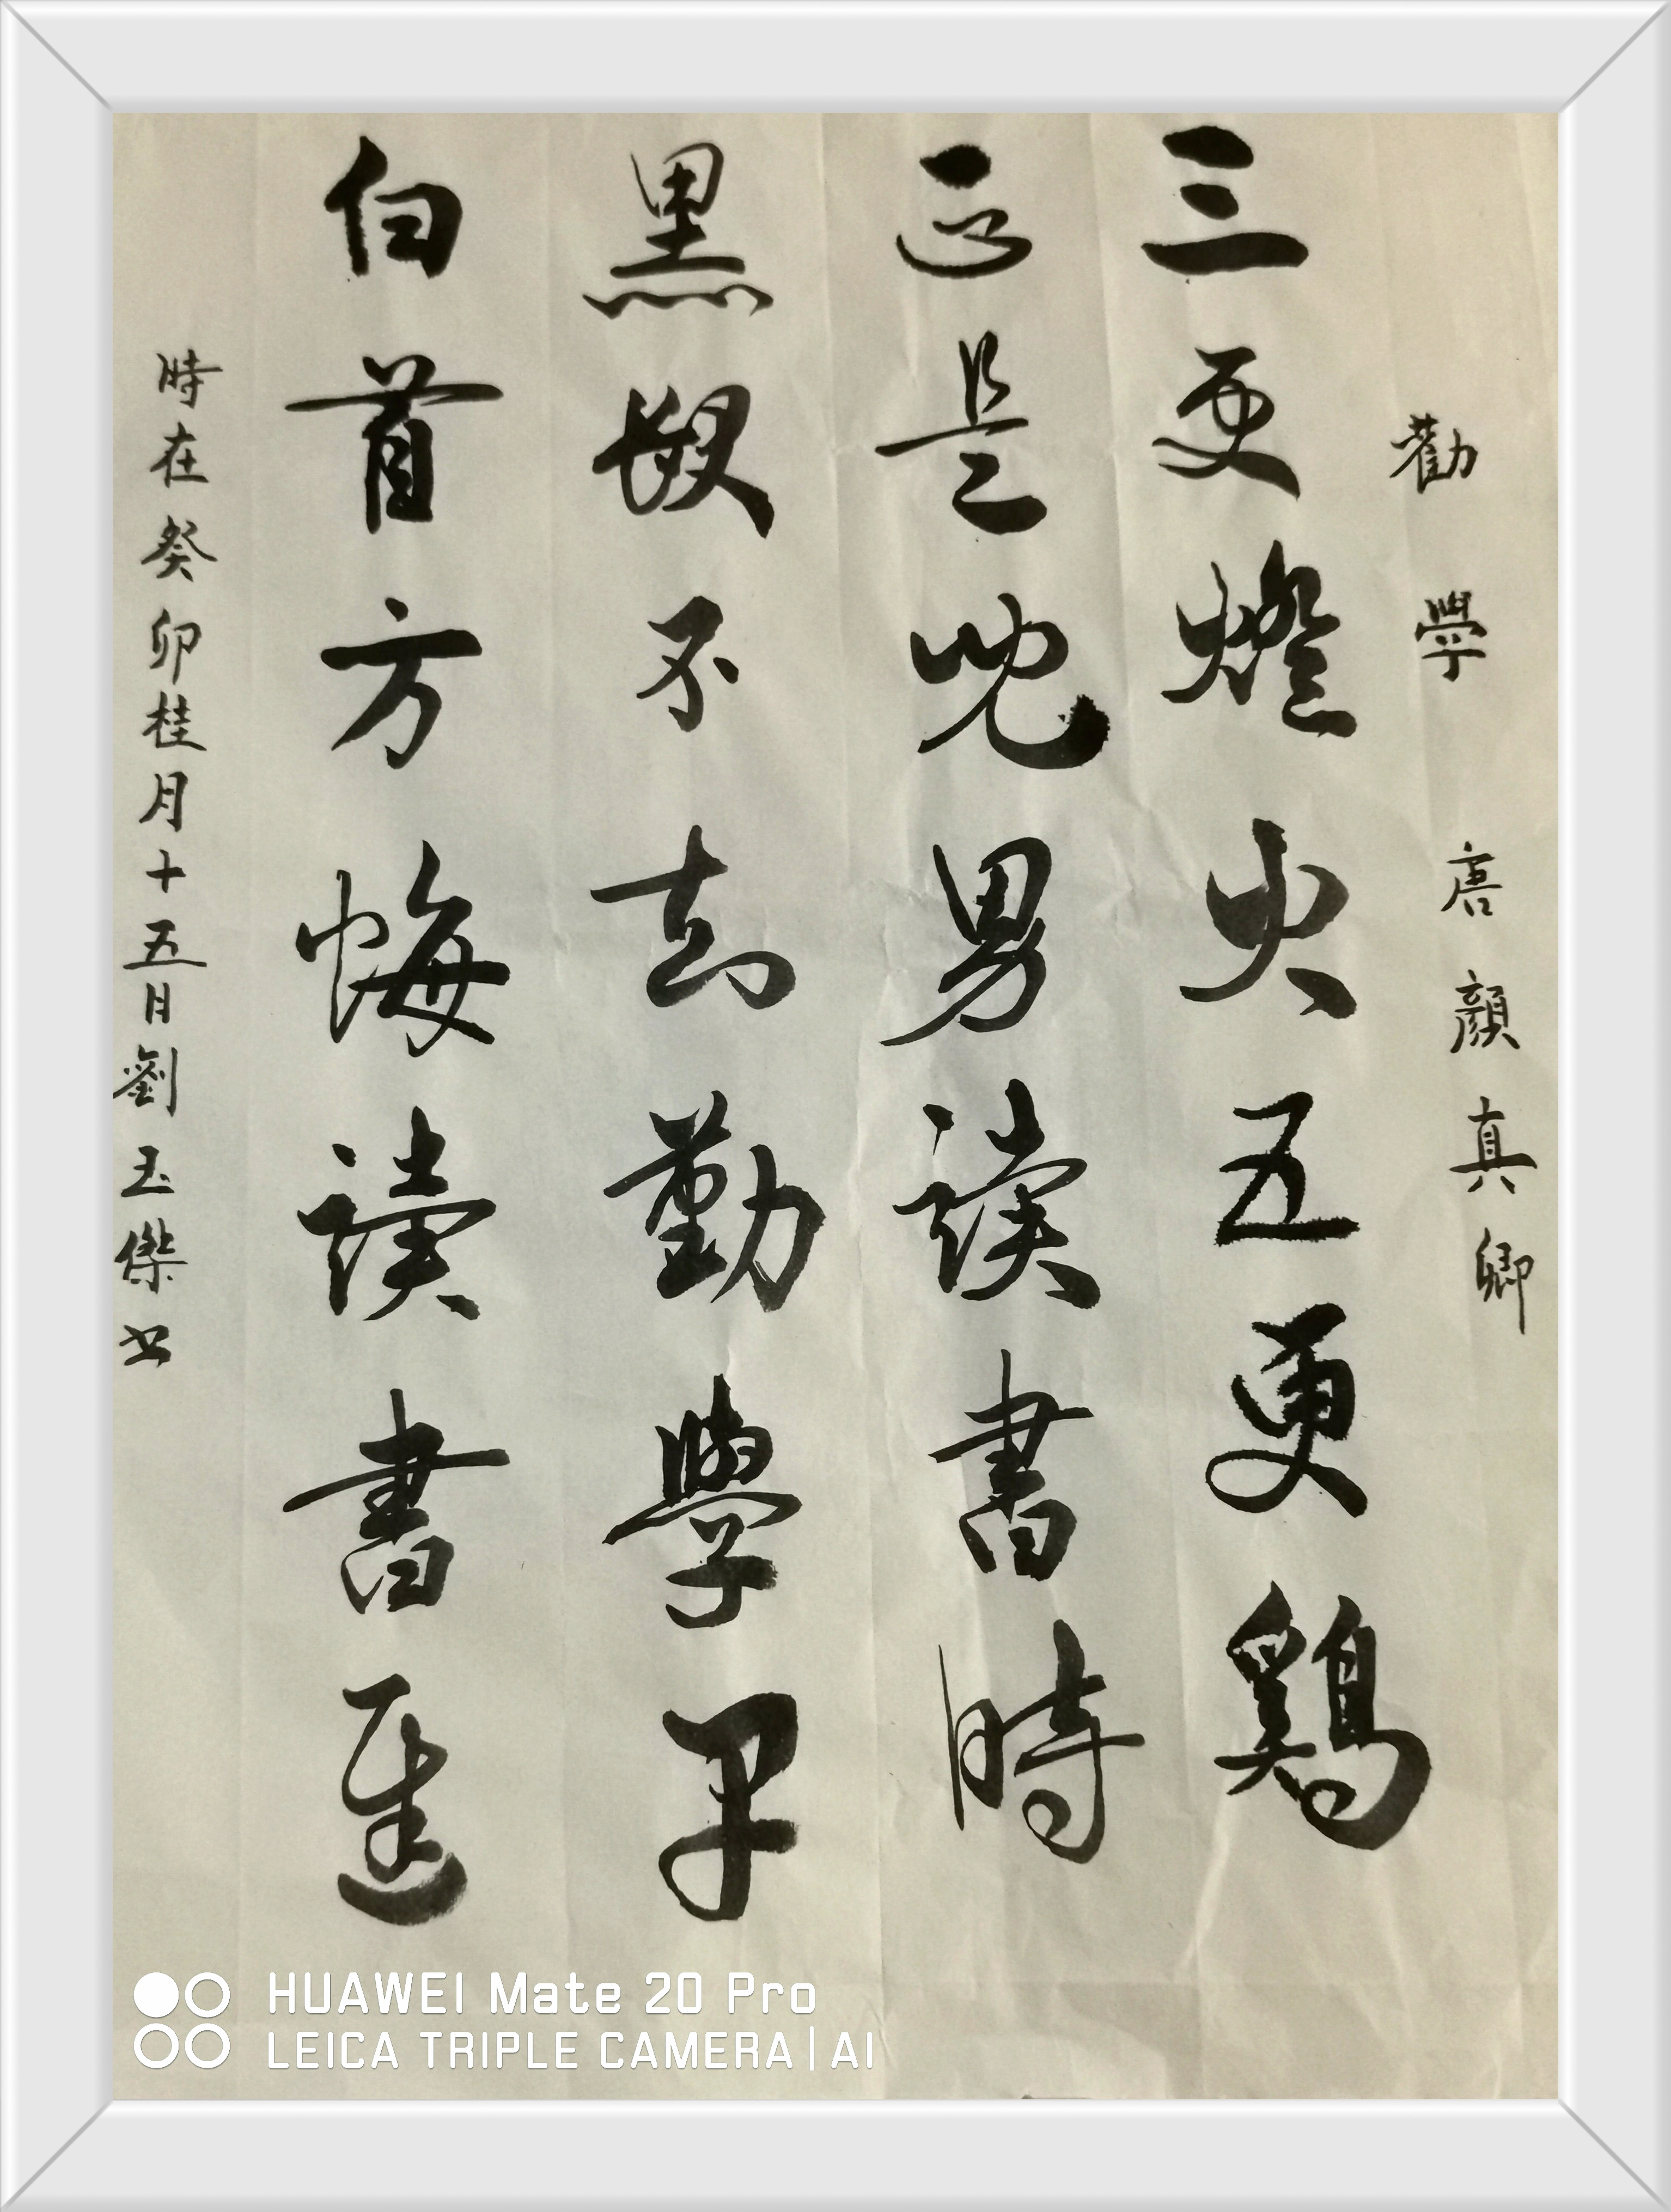 勸學 唐 顏真卿
三更燈火五更鷄
正是兒男讀書時
黑髮不知勤學早
白首方悔讀書遲
時在癸卯桂月十五日劉玉傑书
HUAWEI Mate 20 Pro
LEICA TRIPLE CAMERA | AI